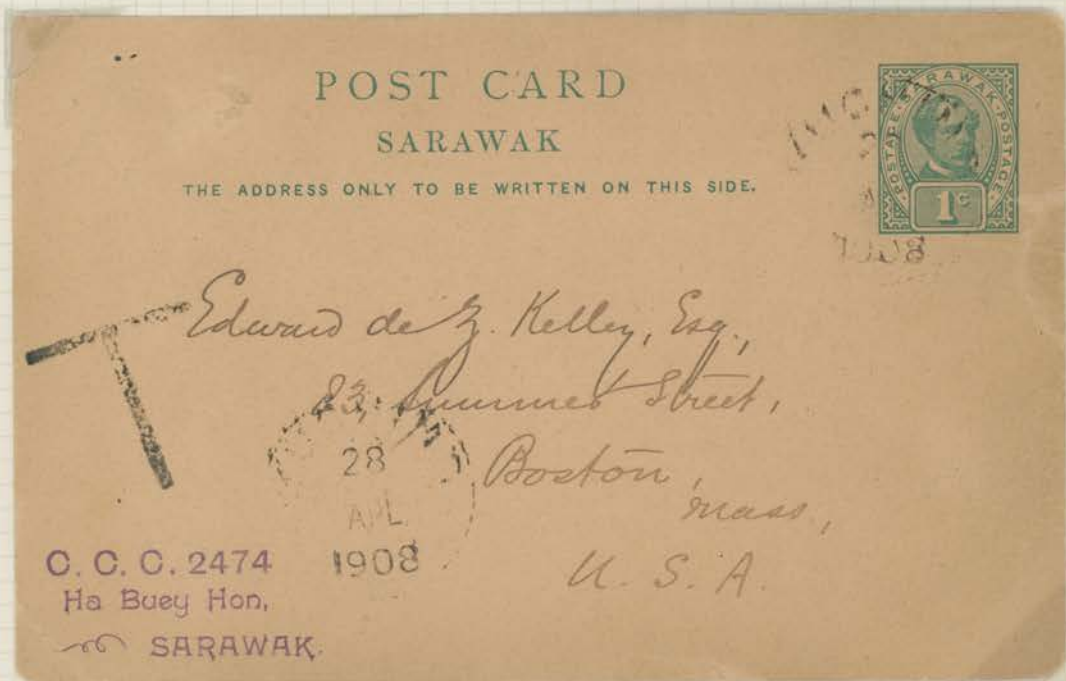 POST CARD
SARAWAK
THE ADDRESS ONLY TO BE WRITTEN ON THIS SIDE.
POSTAGE · SARAWAK · POSTAGE
1c
1908
T
Edward de Z. Kelley, Esq.,
83, Summer Street,
Boston,
Mass,
U. S. A.
28
APL
1908
C. C. C. 2474
Ha Buey Hon,
SARAWAK.